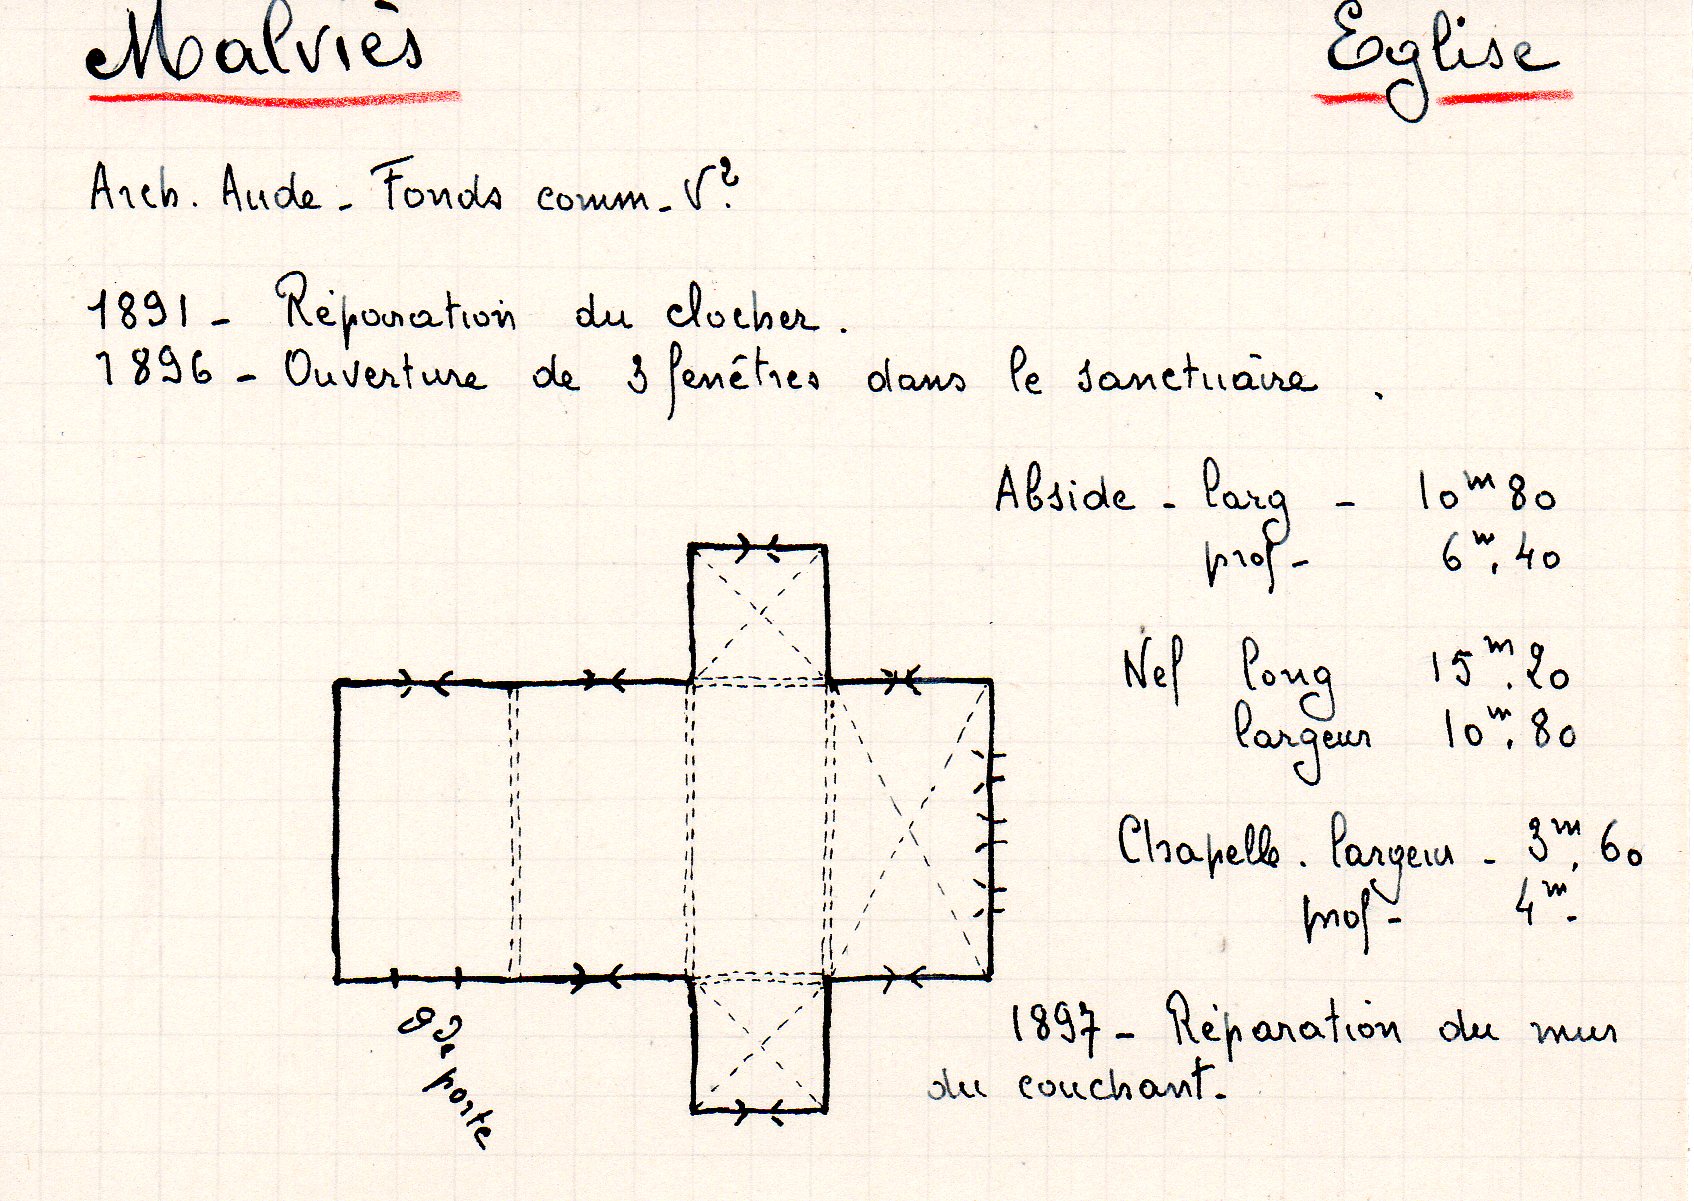 Malviès Eglise
Arch. Aude - Fonds comm - V²
1891 - Réparation du clocher.
1896 - Ouverture de 3 fenêtres dans le sanctuaire.
Abside - larg - 10ᵐ80
prof - 6ᵐ,40
Nef long 15ᵐ.20
largeur 10ᵐ,80
Chapelle. largeur - 3ᵐ,60
prof - 4ᵐ.
1897 - Réparation du mur
du couchant.
gde porte